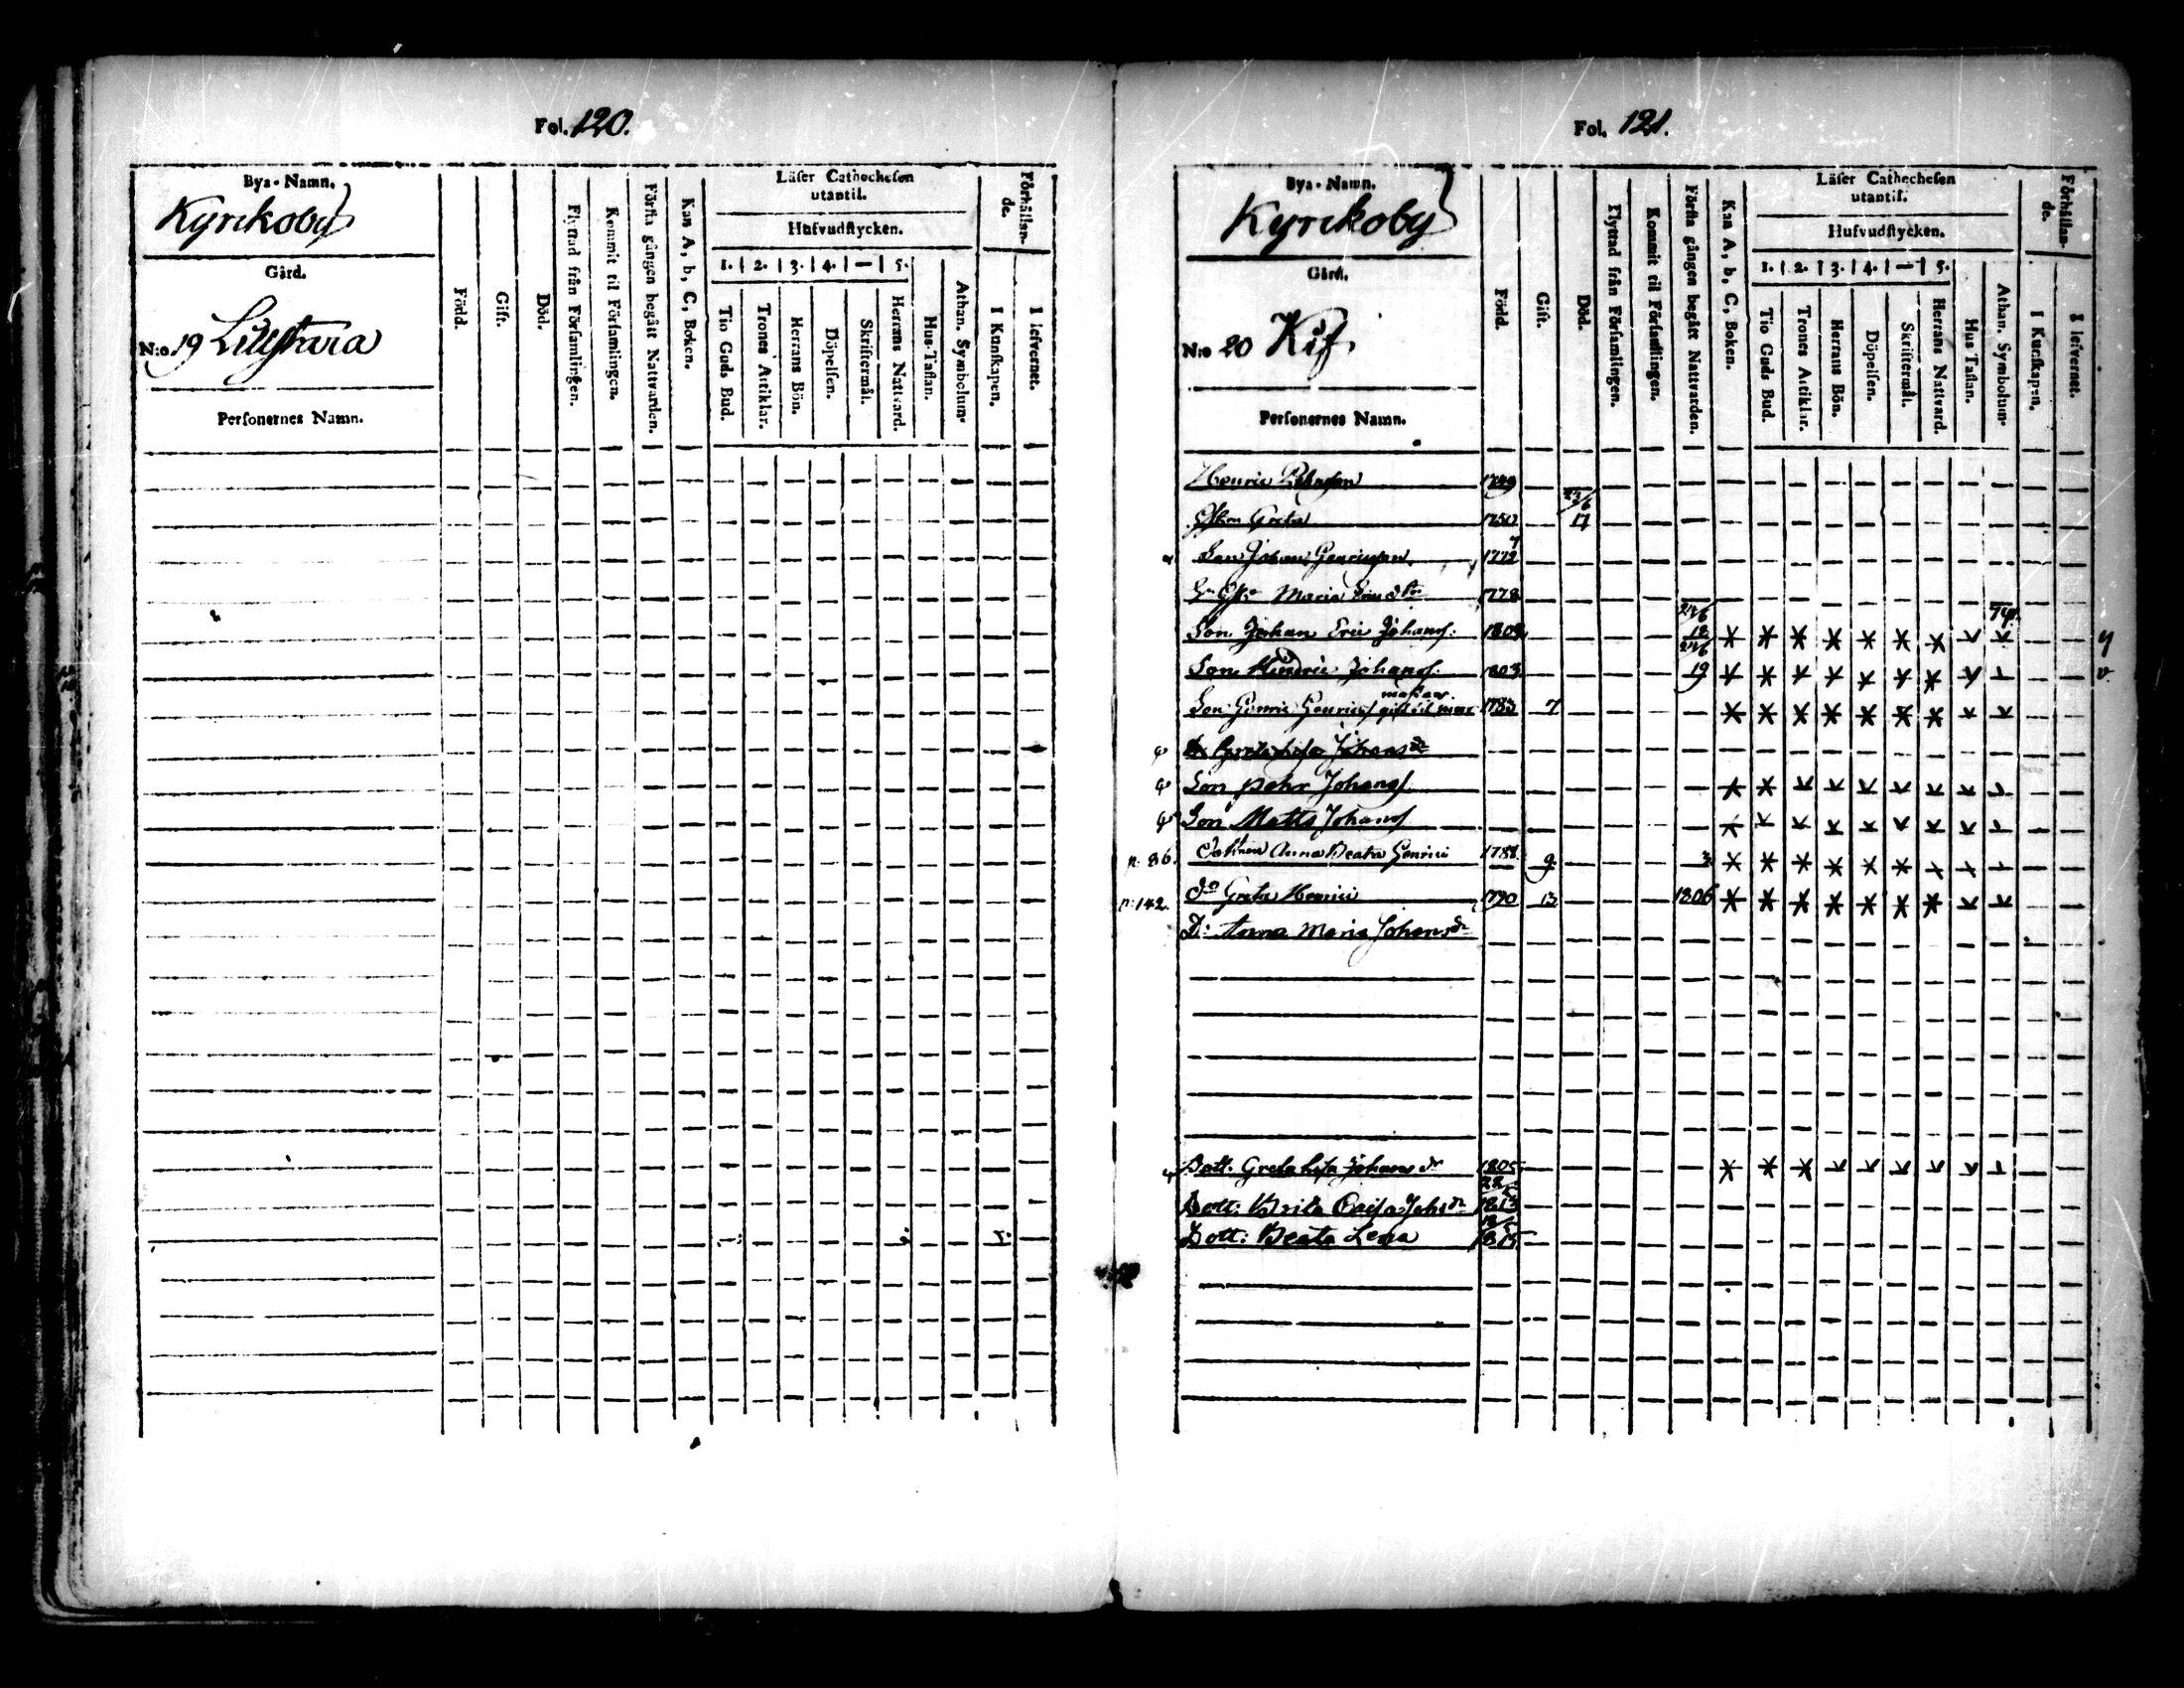 Fol. 120.
Bya-Namn.
Kyrckoby
Gård.
N:o 19 Lillstrara
Perſonernes Namn.
Född.
Gift.
Död.
Flyttad från Förſamlingen.
Kommit til Förſamlingen.
Förſta gången begått Nattvarden.
Kan A, b, C, Boken.
Läſer Cathecheſen utantil.
Hufvudſtycken.
1. 2. 3. 4. — 5.
Tio Guds Bud.
Trones Artiklar.
Herrans Bön.
Döpelſen.
Skriftermål.
Herrans Nattvard.
Hus-Taflan.
Athan. Symbolum.
Förhållande.
I Kunſkapen.
I lefvernet.
Fol. 121.
Bya-Namn.
Kyrckoby
Gård.
N:o 20 Kif.
Perſonernes Namn.
Född.
Gift.
Död.
Flyttad från Förſamlingen.
Kommit til Förſamlingen.
Förſta gången begått Nattvarden.
Kan A, b, C, Boken.
Läſer Cathecheſen utantil.
Hufvudſtycken.
1. 2. 3. 4. — 5.
Tio Guds Bud.
Trones Artiklar.
Herrans Bön.
Döpelſen.
Skriftermål.
Herrans Nattvard.
Hus Taflan.
Athan. Symbolum.
Förhållande.
I Kunſkapen.
I lefvernet.
Henric 1749
Greta 1750 23/6 17
Son Johan 1772
Maria 1778
Son Johan Eric Johans: 24/6 18
Son Hindric Johans: 1803 24/6 19
Son Henric 1783 7
Greta Lisa Johans dr
Son Pehr Johans
Son Matts Johans
n: 86. Anna Beata Henrici 1788 9 3
n: 142. do Greta Henrici 1790 13 1806
D: Anna Maria Johans dr
Dott. Greta Lisa Johans dr 1805
Dott: Brita Caisa Johs dr 1813
Dott: Beata Lena 1815